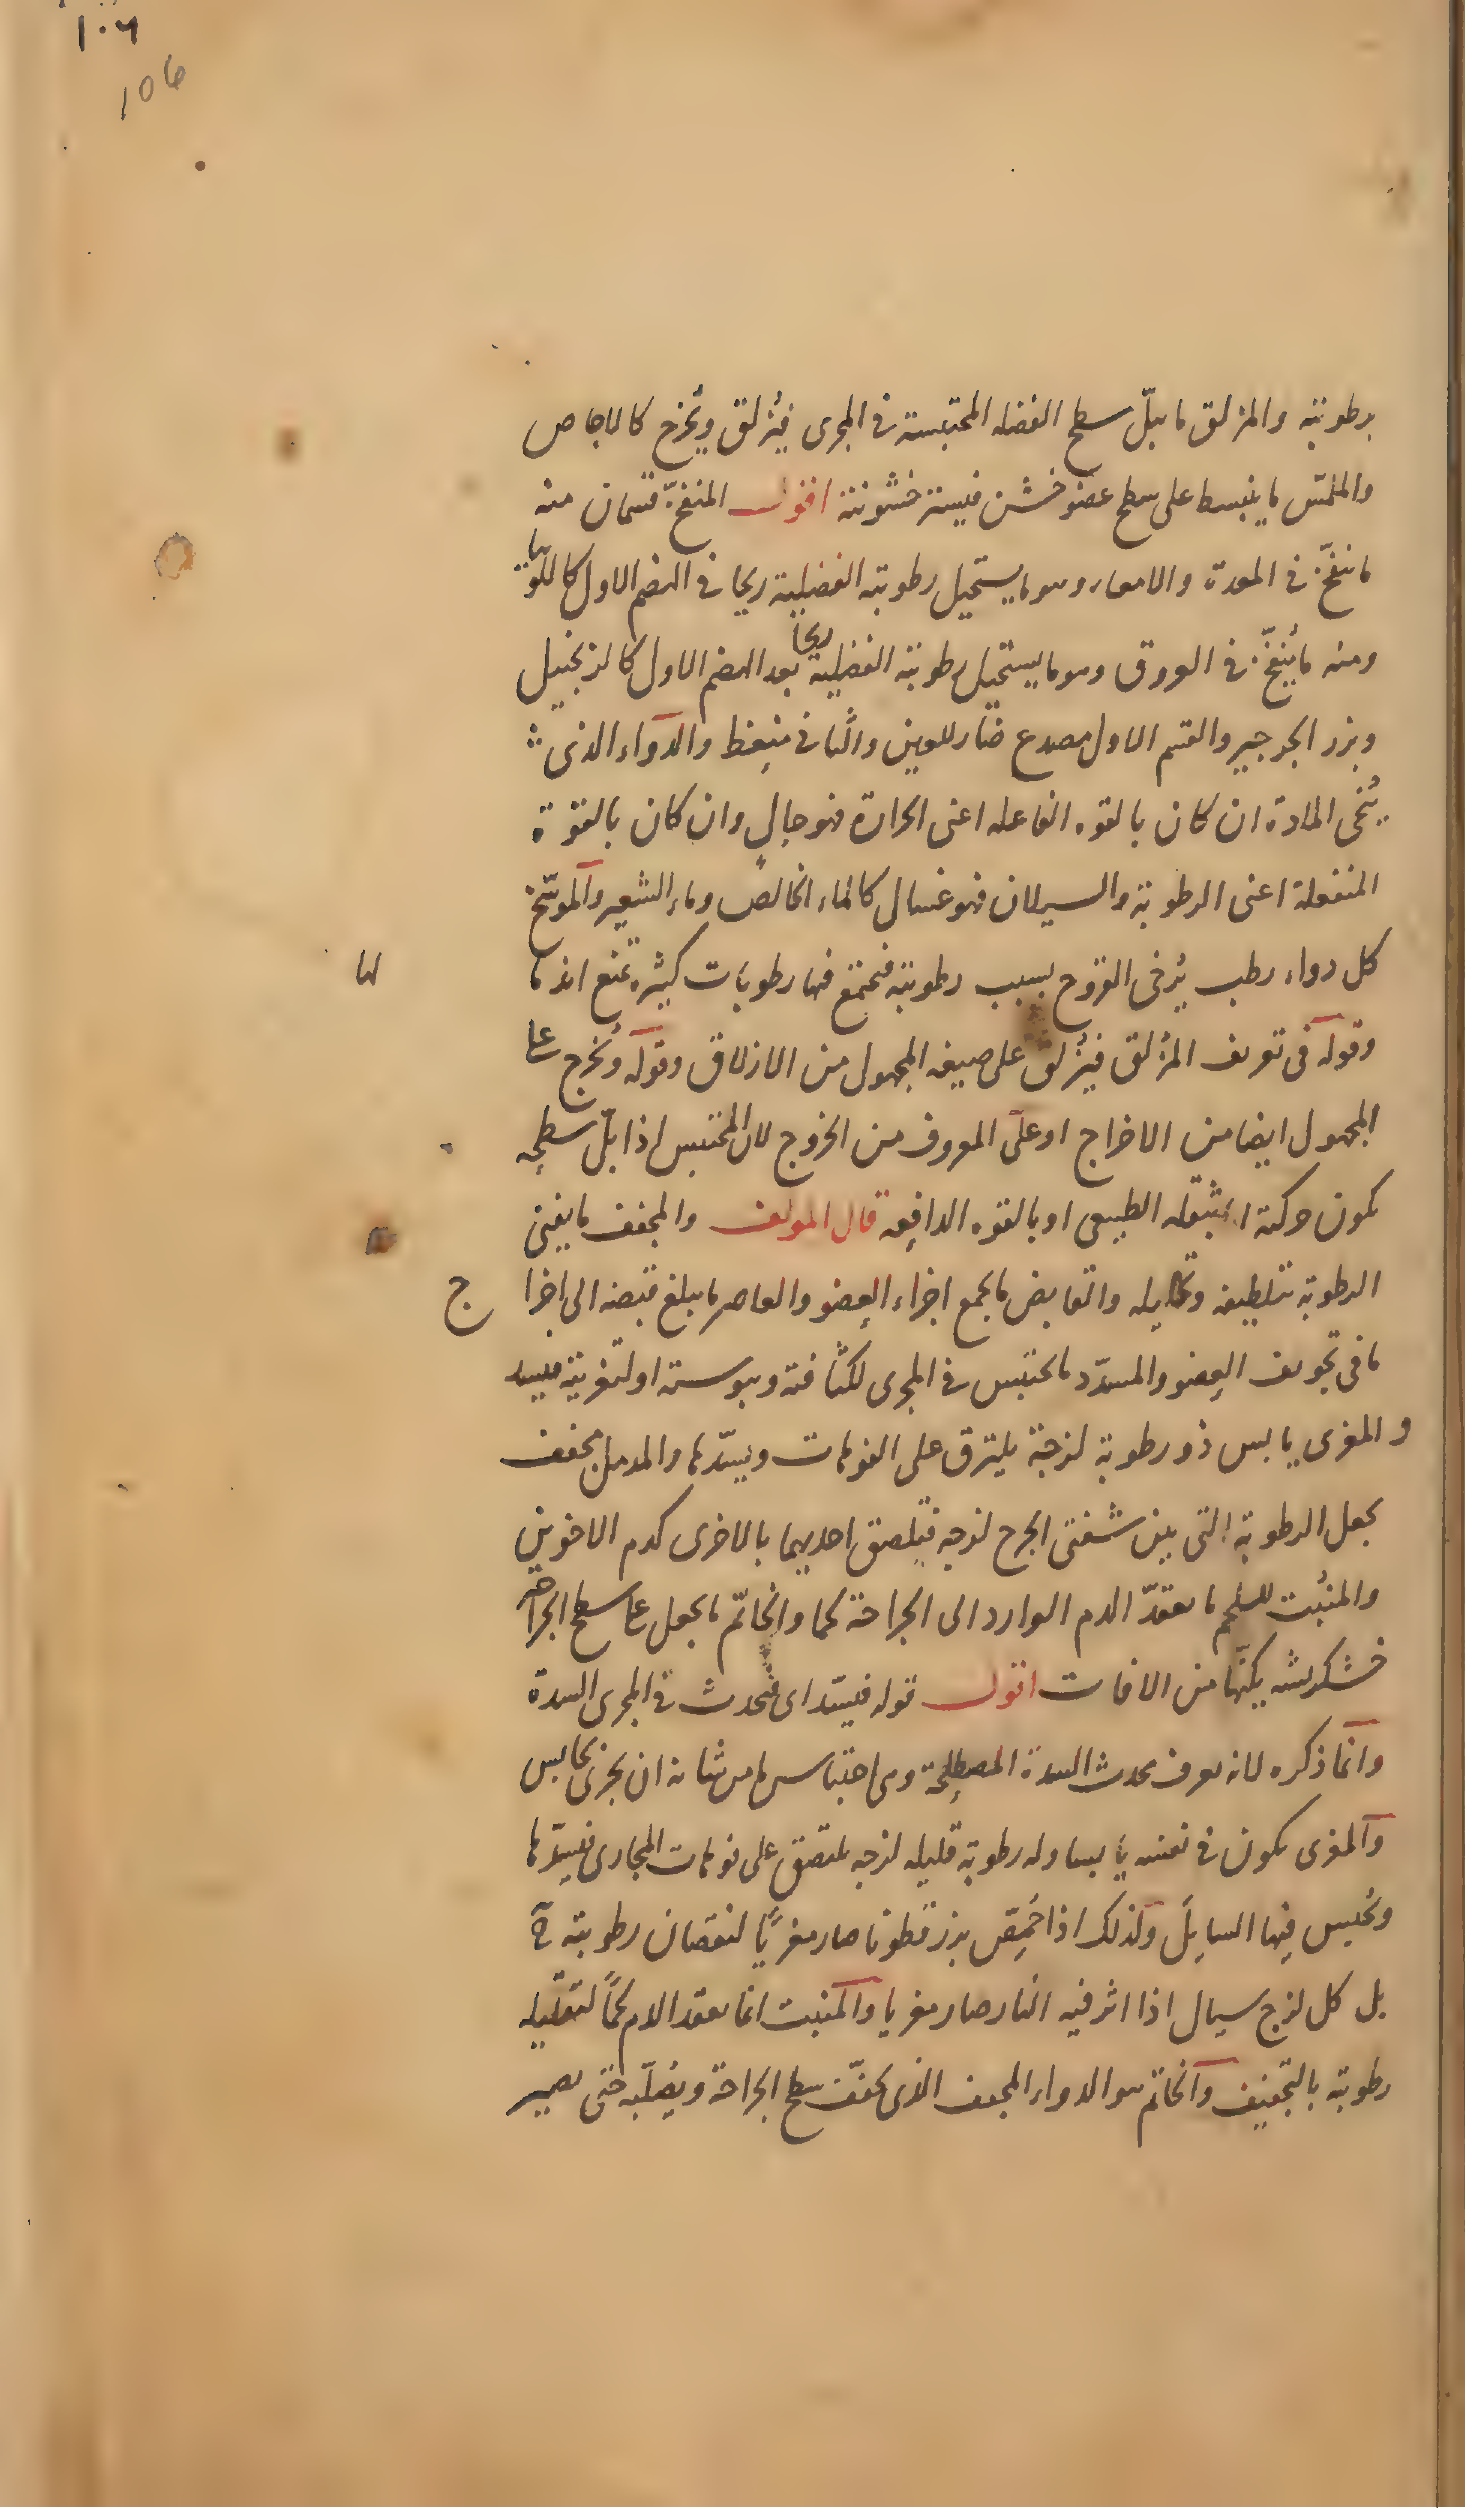 ١٠٦
106
برطوبته والمزلق ما يبلّ سطح الفضله المحتبسة فى المجرى فيُزلق ويُخرج كالاجاص
والمملس ما ينبسط على سطح عضو خشن فيستر خشونته اقول المنفخ قسمان منه
ما ينفخ فى المعدة والامعاء وهو ما يستحيل رطوبته الفضلية ريحا فى الهضم الاول كاللوبيا
ومنه ما يُنفخ فى العروق وهو ما يستحيل رطوبته الفضلية ريحا بعد الهضم الاول كالزنجبيل
وبزر الجرجير والقسم الاول مصدع ضار للعين والثانى منعظ والدواء الذى
يُنحى المادة ان كان بالقوه الفاعله اعنى الحرارة فهو جالٍ وان كان بالقوة
المنفعلة اعنى الرطوبة والسيلان فهو غسال كالماء الخالص وماء الشعير والموسّخ
كل دواء رطب يُرخى القروح بسبب رطوبته فيجتمع فيها رطوبات كثيرة تمنع اندما
لها
وقوله فى تعريف المزلق فيُزلق على صيغه المجهول من الازلاق وقوله ويُخرج على
المجهول ايضا من الاخراج او على المعروف من الخروج لان المحتبس اذا ابتلّ سطحه
يكون حركته اما بثقله الطبيعى او بالقوه الدافعه قال المولف والمجفف ما يفنى
الرطوبة بتلطيفه وتحليله والقابض ما يجمع اجزاء العضو والعاصر ما يبلغ قبضه الى اخراج
ما فى تجويف العضو والمسدّد ما يحتبس فى المجرى لكثافته ويبوسته او لتغريته فيسد
والمغرى يابس ذو رطوبة لزجة يلتزق على الفوهات ويسدّها والمدمل مجفف
يجعل الرطوبة التى بين شفتى الجرح لزجه فيلصق احديهما بالاخرى كدم الاخوين
والمنبت للحم ما يعقد الدم الوارد الى الجراحة لحما والخاتم ما يجعل على سطح الجراحه
خشكريشه يكنّها من الافات اقول قوله فيسد اى فيحدث فى المجرى السدة
وانما ذكره لانه يعرف بحدث السدة المصطلحة وهى احتباس ما من شانه ان يجرى بحابس
والمغرى يكون فى نفسه يابسا وله رطوبة قليله لزجه يلتصق على فوهات المجارى فيسدّها
ويُحبس فيها السايل ولذلك اذا حُمِّص بزر قطونا صار مغريًا لنقصان رطوبته ح
بل كل لزج سيال اذا اثر فيه النار صار مغريا والمنبت انما يعقد الدم لحمًا لتقليله
رطوبته بالتجفيف والخاتم هو الدواء المجفف الذى يجفف سطح الجراحة ويصلّبه حتى يصير